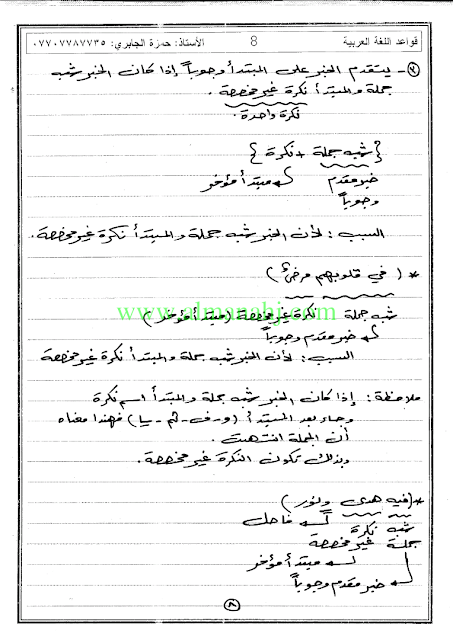 قواعد اللغة العربية 8 الأستاذ: حمزة الجابري: ٠٧٧٠٧٧٨٧٧٣٥
٢- يتقدم الخبر على المبتدأ وجوباً إذا كان الخبر شبه
جملة والمبتدأ نكرة غير مخصصة.
نكرة واحدة.
{ شبه جملة + نكرة }
خبر مقدم مبتدأ مؤخر
وجوباً
السبب: لأن الخبر شبه جملة والمبتدأ نكرة غير مخصصة.
* ( في قلوبهم مرضٌ )
www.almanahj.com
شبه جملة نكرة غير مخصصة (مبتدأ مؤخر)
خبر مقدم وجوباً
السبب: لأن الخبر شبه جملة والمبتدأ نكرة غير مخصصة
ملاحظة: إذا كان الخبر شبه جملة والمبتدأ اسم نكرة
وجاء بعد المبتدأ (و - ف - ثم - يا) فهذا معناه
أن الجملة انتهت.
وبذلك تكون النكرة غير مخصصة.
* (فيه هدى ونور)
شبه نكرة
جملة غير مخصصة
مبتدأ مؤخر
خبر مقدم وجوباً
٨